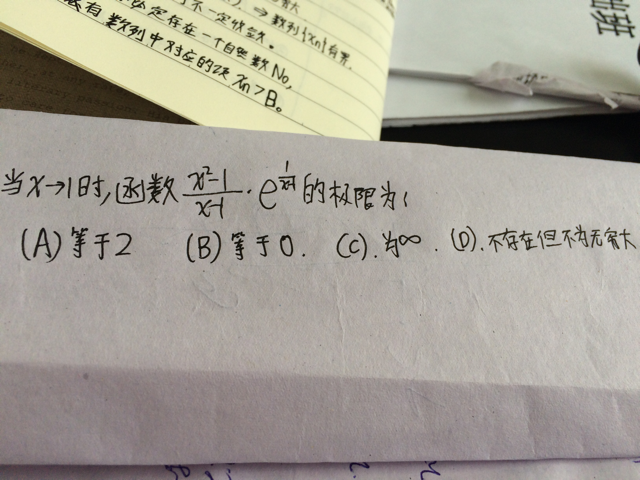 不一定收敛。⇒数列{xn}有界.
必定存在一个自然数No,
有数列中对应的项 xn>B。
当x→1时,函数 \frac{x²-1}{x-1}·e^{\frac{1}{x-1}} 的极限为(
(A)等于2 (B)等于0. (C).为∞. (D).不存在但不为无穷大